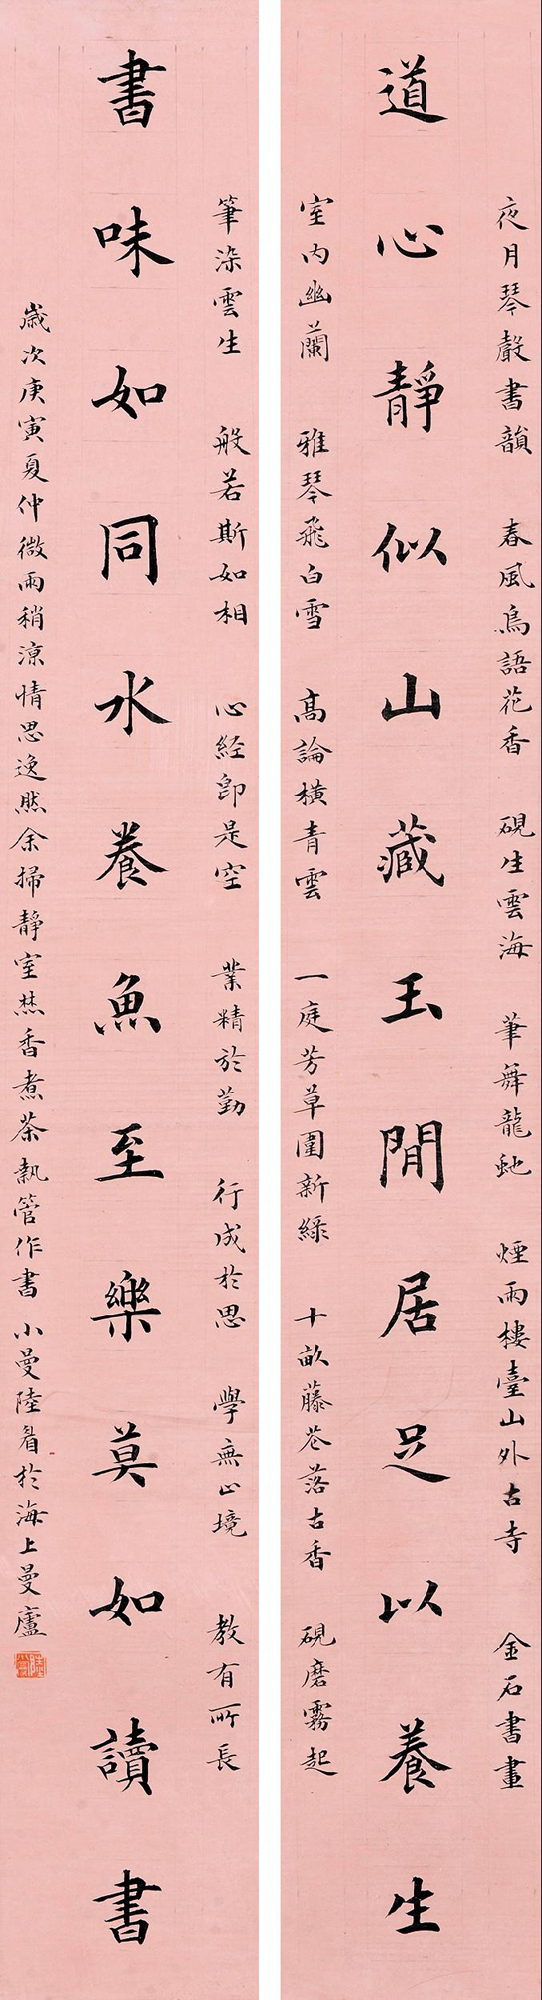 夜月琴聲書韻 春風鳥語花香 硯生雲海 筆舞龍蛇 煙雨樓臺山外古寺 金石書畫
道心靜似山藏玉閒居足以養生
室内幽蘭 雅琴飛白雪 高論橫青雲 一庭芳草圍新綠 十畝藤花落古香 硯磨霧起
筆染雲生 般若斯如相 心経即是空 業精於勤 行成於思 學無止境 教有所長
書味如同水養魚至樂莫如讀書
歲次庚寅夏仲微雨稍涼情思逸然余掃靜室焚香煮茶執管作書 小曼陸眉於海上曼廬